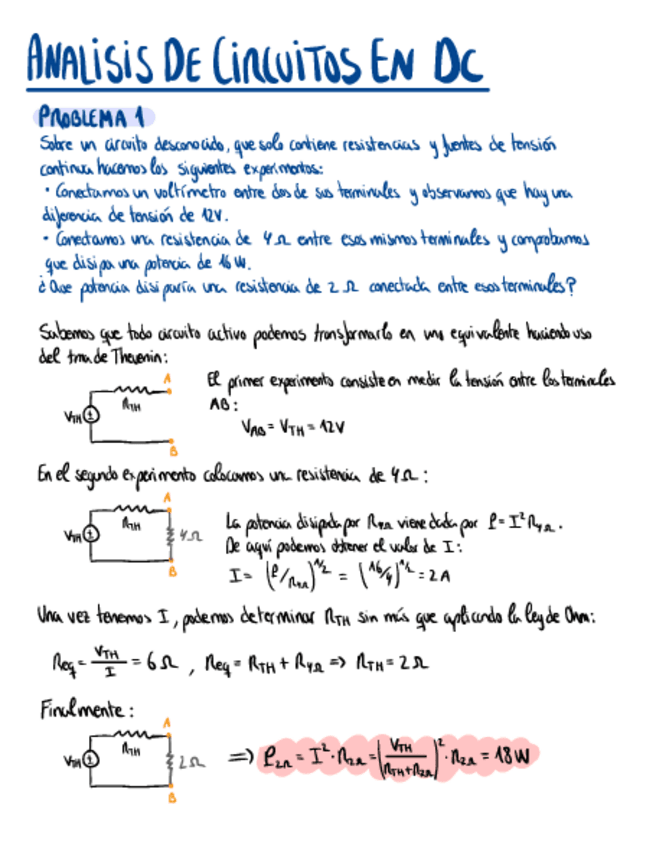 ANALISIS DE CIRCUITOS EN DC
PROBLEMA 1
Sobre un circuito desconocido, que solo contiene resistencias y fuentes de tensión
continua hacemos los siguientes experimentos:
• Conectamos un voltímetro entre dos de sus terminales y observamos que hay una
diferencia de tensión de 12V.
• Conectamos una resistencia de 4Ω entre esos mismos terminales y comprobamos
que disipa una potencia de 16 W.
¿Que potencia disiparía una resistencia de 2Ω conectada entre esos terminales?
Sabemos que todo circuito activo podemos transformarlo en uno equivalente haciendo uso
del tma de Thevenin:
A
El primer experimento consiste en medir la tensión entre los terminales
AB:
RTH
VTH
VAB = VTH = 12V
B
En el segundo experimento colocamos una resistencia de 4Ω:
A
RTH
VTH
4Ω
B
La potencia disipada por R4Ω viene dada por P = I² R4Ω.
De aquí podemos obtener el valor de I:
I = (P/R4Ω)^1/2 = (16/4)^1/2 = 2A
Una vez tenemos I, podemos determinar RTH sin más que aplicando la ley de Ohm:
Req = VTH/I = 6Ω, Req = RTH + R4Ω => RTH = 2Ω
Finalmente:
A
RTH
VTH
2Ω
B
=> P2Ω = I² · R2Ω = (VTH/(RTH+R2Ω))² · R2Ω = 18W